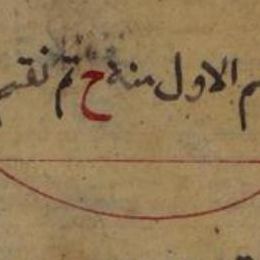 الاول منه ح ثم نقسم